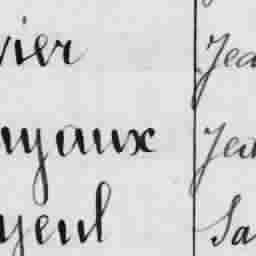 vier Jea
yaux Jea
yeul Sa